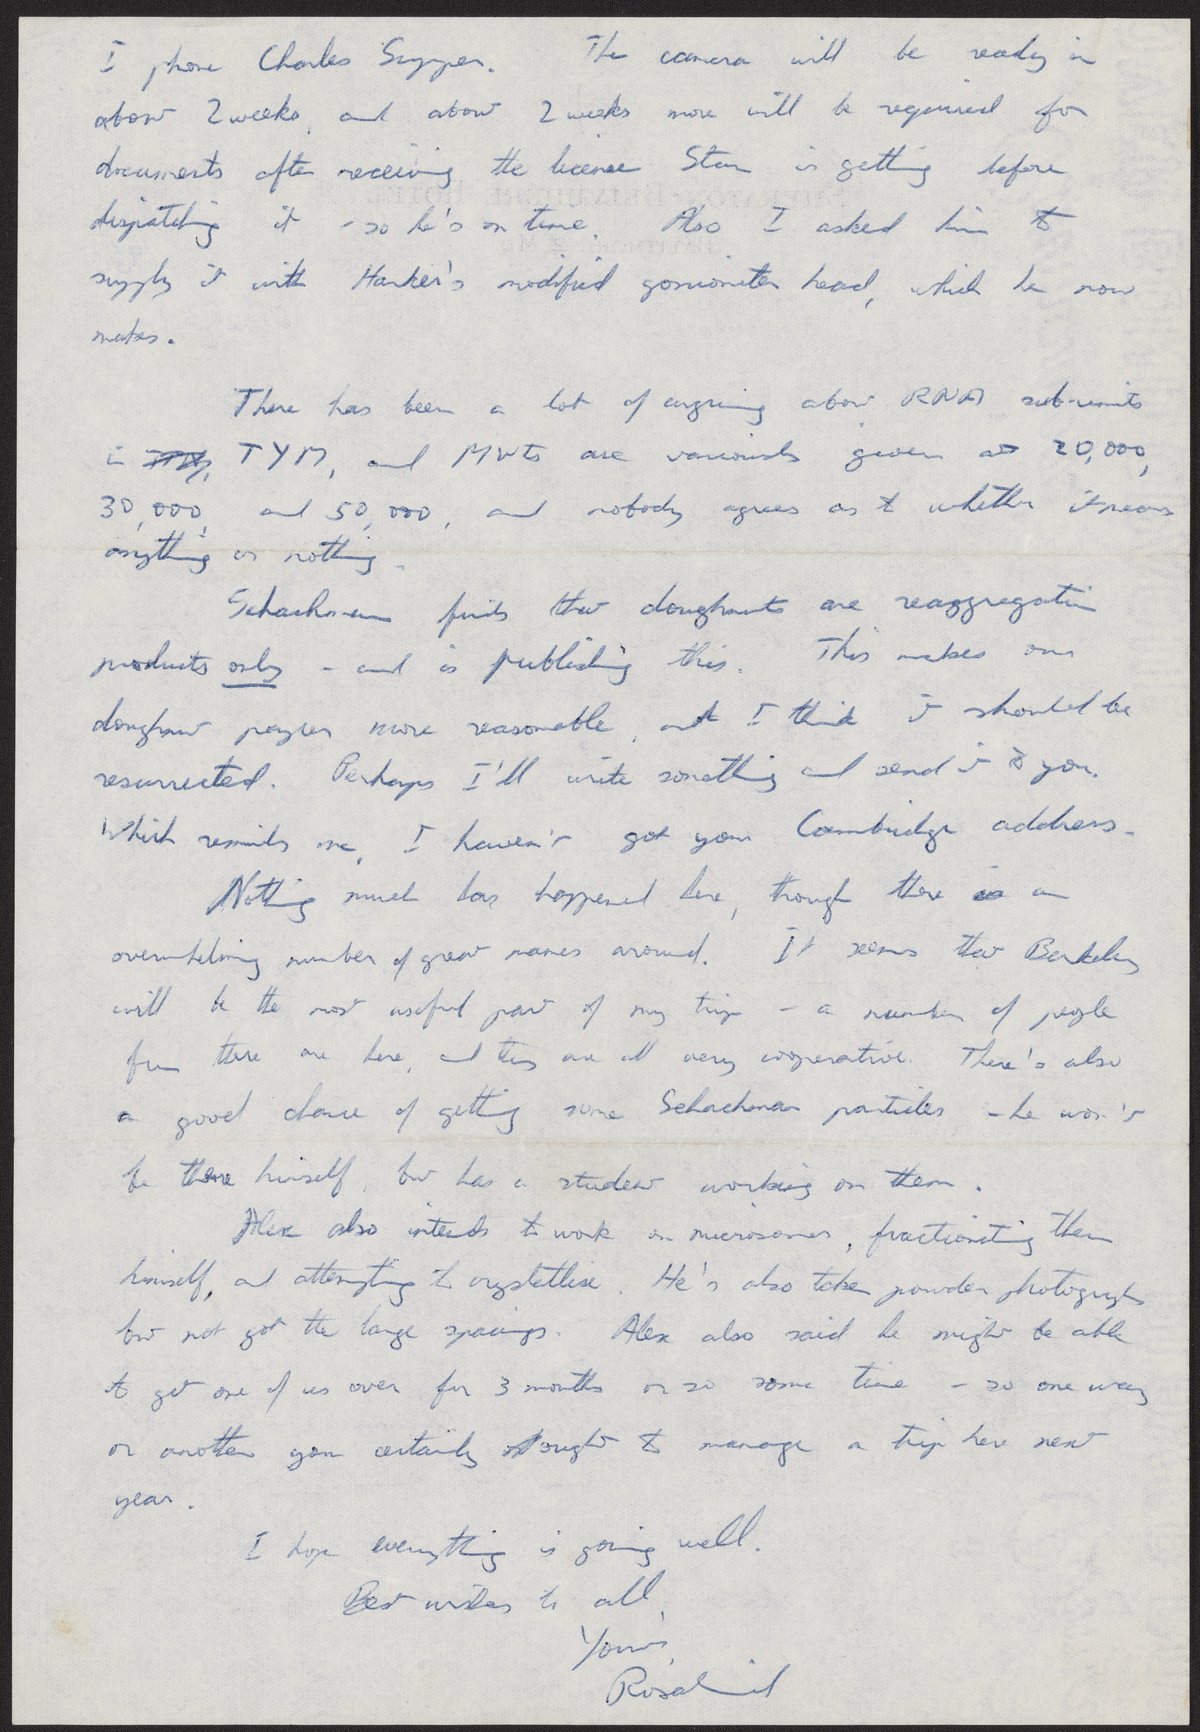 I phone Charles Supper. The camera will be ready in
about 2 weeks, and about 2 weeks more will be required for
documents after receiving the licence Stan is getting before
dispatching it - so he's on time. Also I asked him to
supply it with Harker's modified goniometer head, which he now
makes.
There has been a lot of arguing about RNA sub-units
in TYM, and MWts are variously given as 20,000,
30,000, and 50,000, and nobody agrees as to whether it means
anything or nothing.
Schachman finds that doughnuts are reaggregation
products only - and is publishing this. This makes our
doughnut paper more reasonable, and I think it should be
resurrected. Perhaps I'll write something and send it to you.
Which reminds me, I haven't got your Cambridge address.
Nothing much has happened here, though there is an
overwhelming number of great names around. It seems that Berkeley
will be the most useful part of my trip - a number of people
from there are here, and they are all very cooperative. There's also
a good chance of getting some Schachman particles - he won't
be there himself, but has a student working on them.
Alex also intends to work on microsomes, fractionating them
himself, and attempting to crystallise. He's also taken powder photographs
but not got the large spacings. Alex also said he might be able
to get one of us over for 3 months or so some time - so one way
or another you certainly ought to manage a trip here next
year.
I hope everything is going well.
Best wishes to all,
Yours,
Rosalind